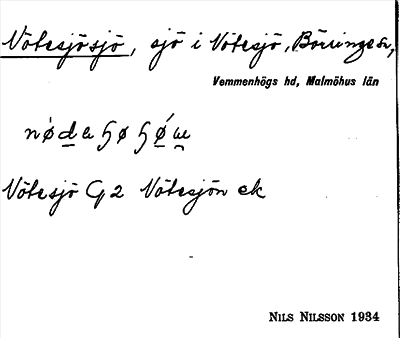 Nötesjösjö, sjö i Nötesjö, Börringe sn,
Vemmenhögs hd, Malmöhus län
Nötesjö G 2 Nötesjön ek
NILS NILSSON 1934